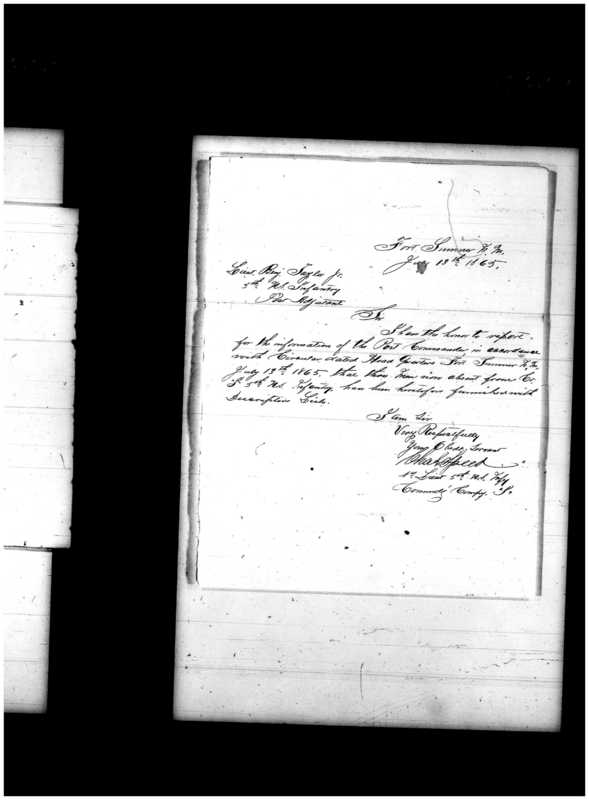 Fort Sumner N. M.
July 13th 1865.
Lieut. Benj Taylor Jr.
5th U.S. Infantry
Post Adjutant
Sir
I have the honor to report
for the information of the Post Commander, in accordance
with Circular dated Head Quarters Fort Sumner N. M.
July 13th 1865 that three men now absent from Co.
5th U.S. Infantry have been heretofore furnished with
Descriptive Lists.
I am Sir
Very Respectfully
Your Obedt. Servant
1st Lieut 5th U.S. Infy
Commdg Compy